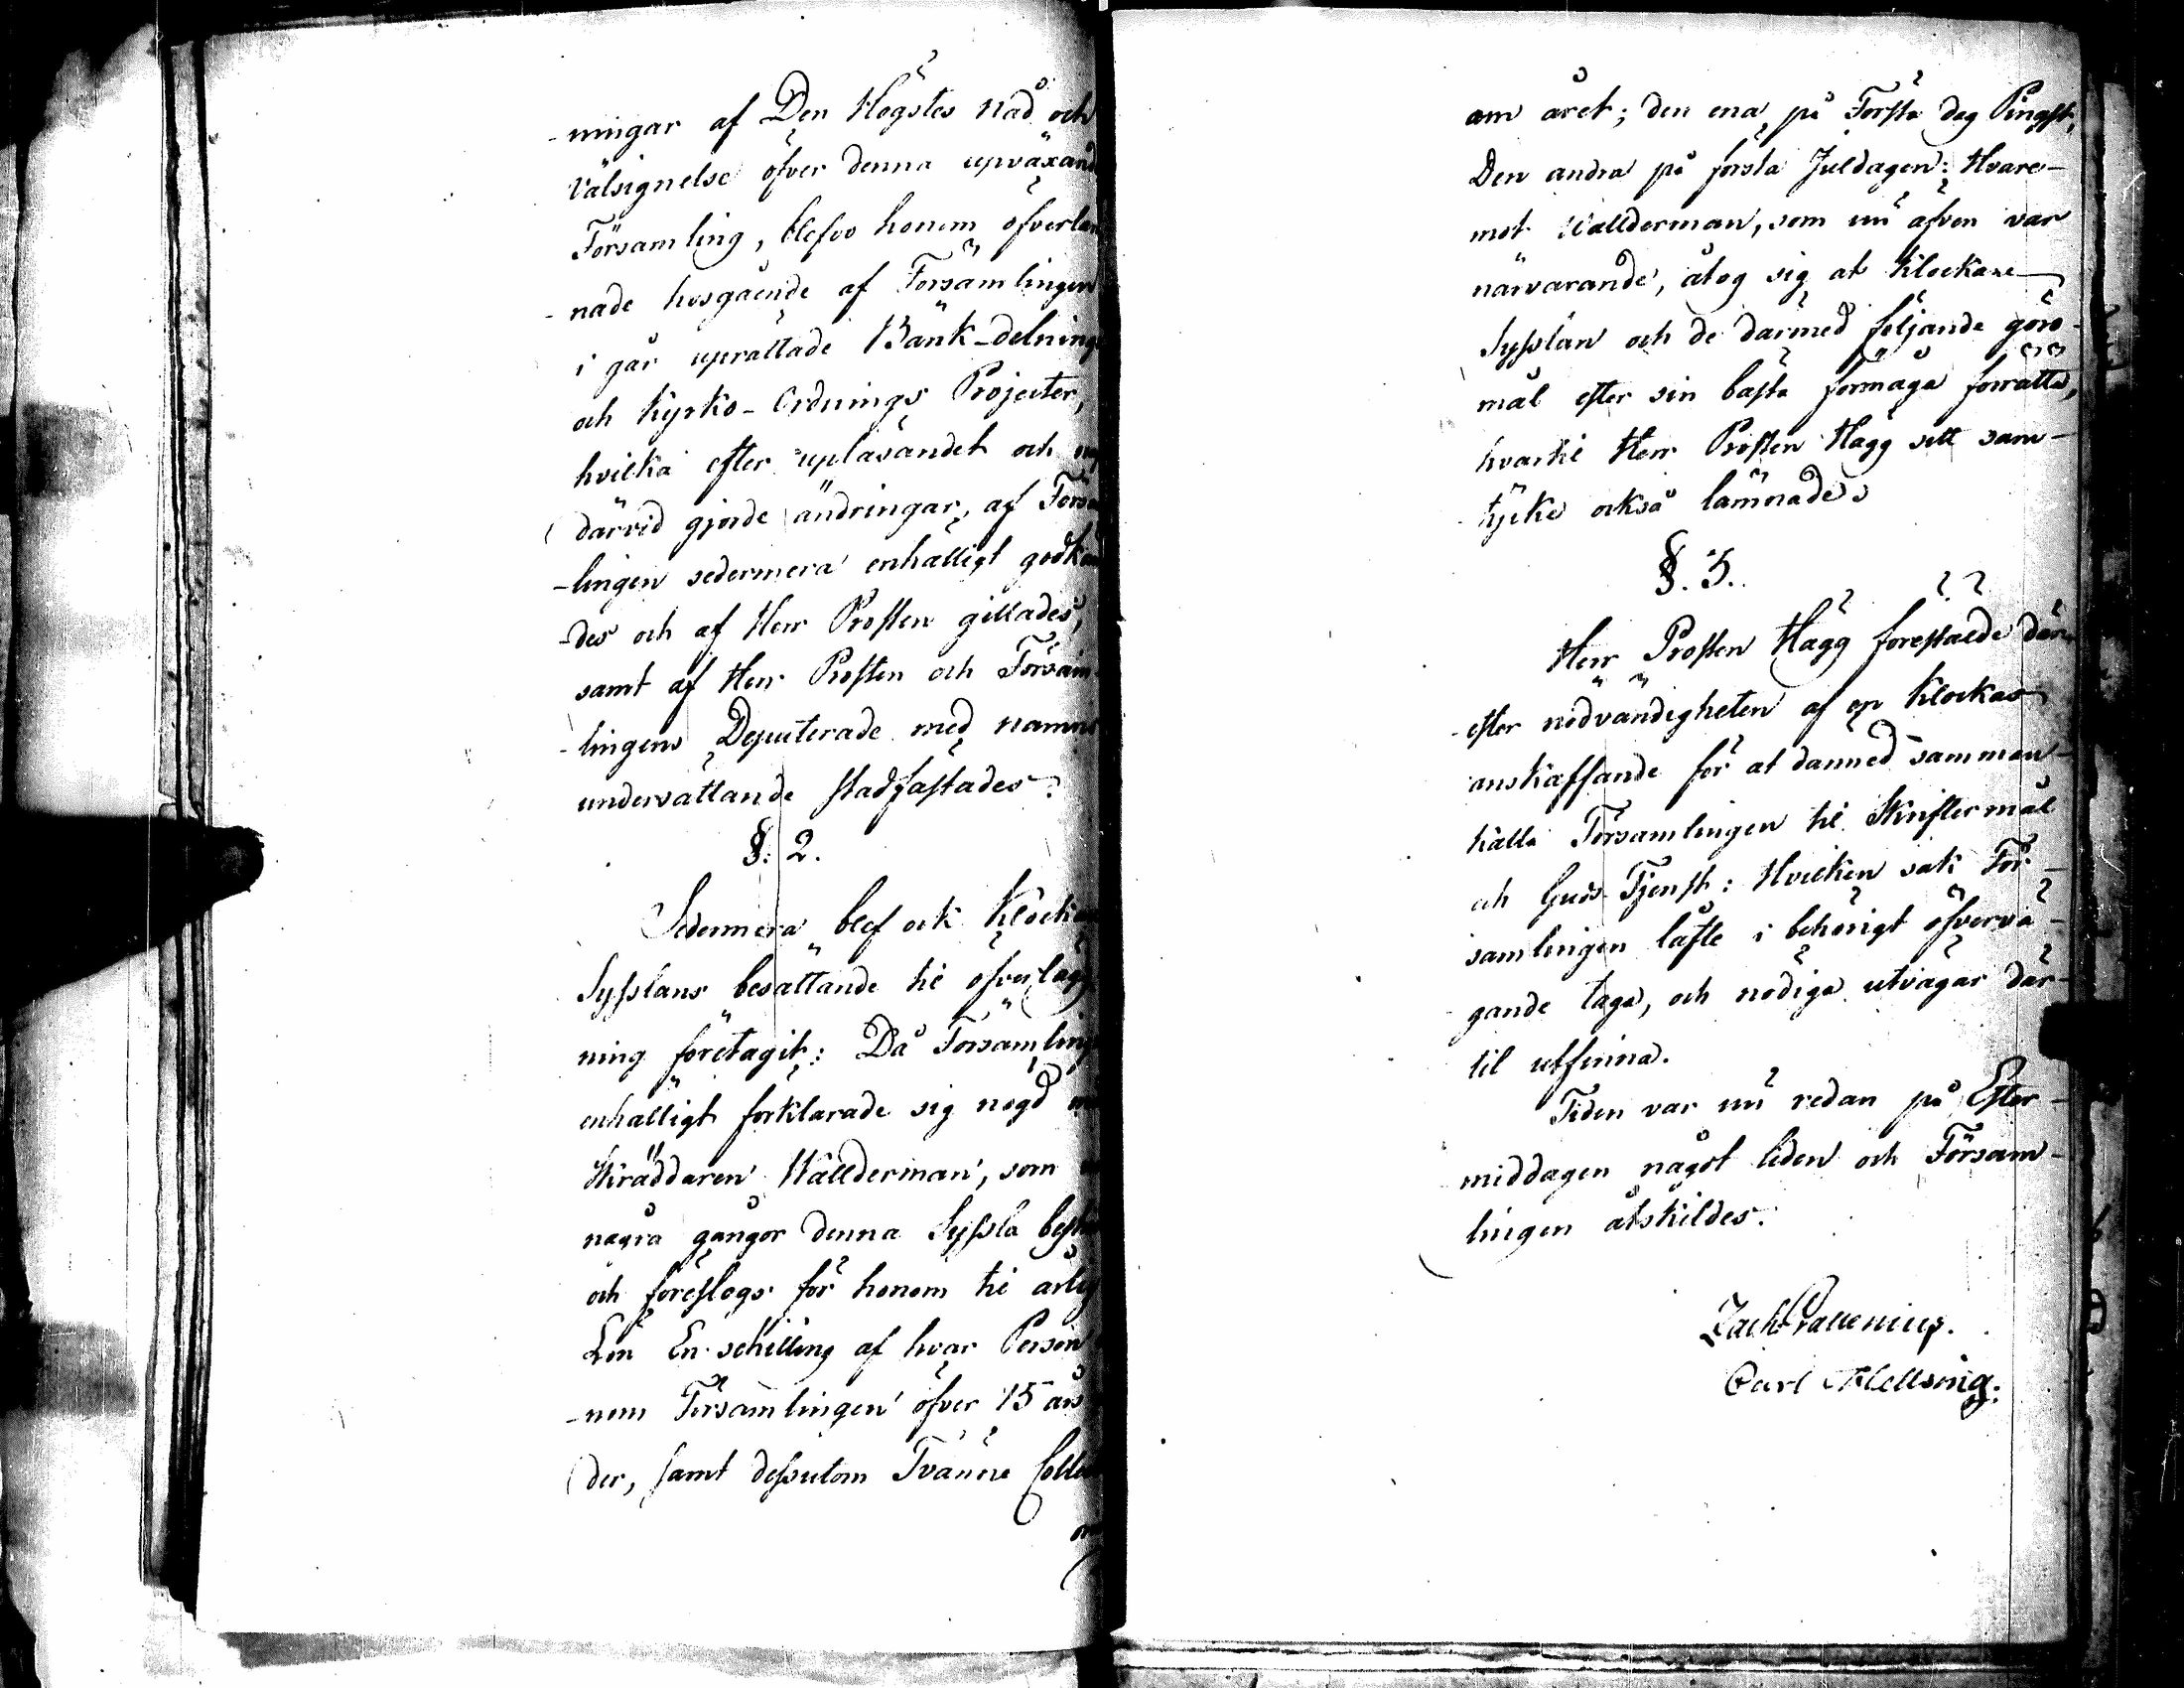 -ningar af Den Högstes nåd och
Välsignelse öfver denna upväxand
Församling, blefvo honom öfverläm
-nade hosgående af Församlingen
i går uprättade Bänk-delnings
och Kyrko-Ordnings Projecter,
hvilka efter upläsandet och
därvid gjorde ändringar, af Försa
-lingen sedermera enhälligt godkän
-des och af Herr Prosten gillades,
samt af Herr Prosten och Försam
-lingens Deputerade med namns
undersättande stadfästades.
§. 2.
Sedermera blef ock Klocka
Sysslans besättande til öfverlägg
ning företagit: Då Församling
enhälligt förklarade sig nögd
Skräddaren Wällderman, som
några gångor denna Syssla
och föreslogs för honom til årlig
Lön En schilling af hvar Person
-nom Församlingen öfver 15 års
der, samt dessutom Tvänne Colle
om
om året; den ena på Första dag Pingst,
Den andra på första Juldagen: Hvare-
mot Wällderman, som nu äfven var
närvarande, åtog sig at Klockare
Sysslan och de därmed följande göro-
mål efter sin bästa förmåga förrätta,
hvartil Herr Prosten Hägg sitt sam-
tycke också lämnade.
§. 3.
Herr Prosten Hägg föreställde där
-efter nödvändigheten af en Klockas
anskaffande för at därmed samman-
kalla Församlingen til Skriftermål
och Guds Tjenst: Hvilken sak För-
samlingen låfte i behörigt öfvervä-
gande taga, och nödiga utvägar där-
til utfinna.
Tiden var nu redan på Efter-
middagen något liden och Försam-
lingen åtskildes.
Carl Mellsing.